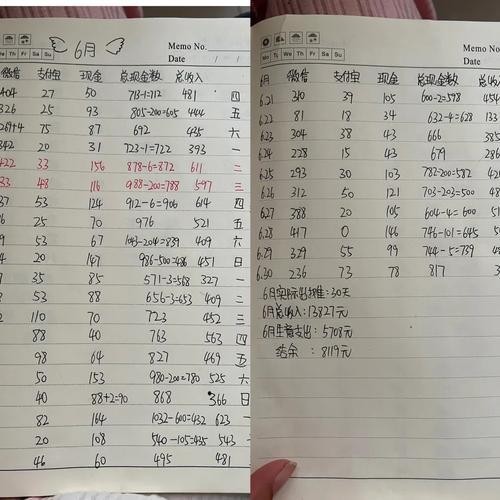 6月
Memo No.
We Th Fr Sa Su
Date / /
微信 支付宝 现金 总现金数 总收入
404 27 50 713-1=712 481 四
326 25 93 805-200=605 444 五
269+4 75 87 692 435 六
342 20 31 723-1=722 393 一
422 33 156 878-6=872 611 二
33 48 116 988-200=788 597 三
37 53 124 912-6=906 614 四
25 70 976 521 五
9 53 67 1043-204=839 409 六
4 20 147 986-500=486 451 日
7 35 85 571-3=568 327 一
2 53 88 656-3=653 409 二
2 110 70 723 452 三
88 40 763 563 四
98 64 827 469 五
50 153 980-200=780 525 六
40 88+2=90 868 366 日
82 164 1032-600=432 623 一
20 108 540-105=435 543 一
46 60 495 481
Memo No.
Mo Tu We Th Fr Sa Su
Date
6月 微信 支付宝 现金 总现金数 总收入
6.21 310 39 105 600-2=598 454
6.22 81 18 34 632-4=628 133
6.23 304 38 43 666 385
6.24 228 15 43 679 286
6.25 293 30 103 782-200=582 42
6.26 312 50 121 703-203=500 48
6.27 388 20 105 604-4=600 51
6.28 417 0 146 746-101=645 5
6.29 329 55 99 744-5=739 48
6.30 236 73 78 817 3
6月实际出摊:30天
6月总收入:13827元
6月生意支出:5708元
结余:8119元